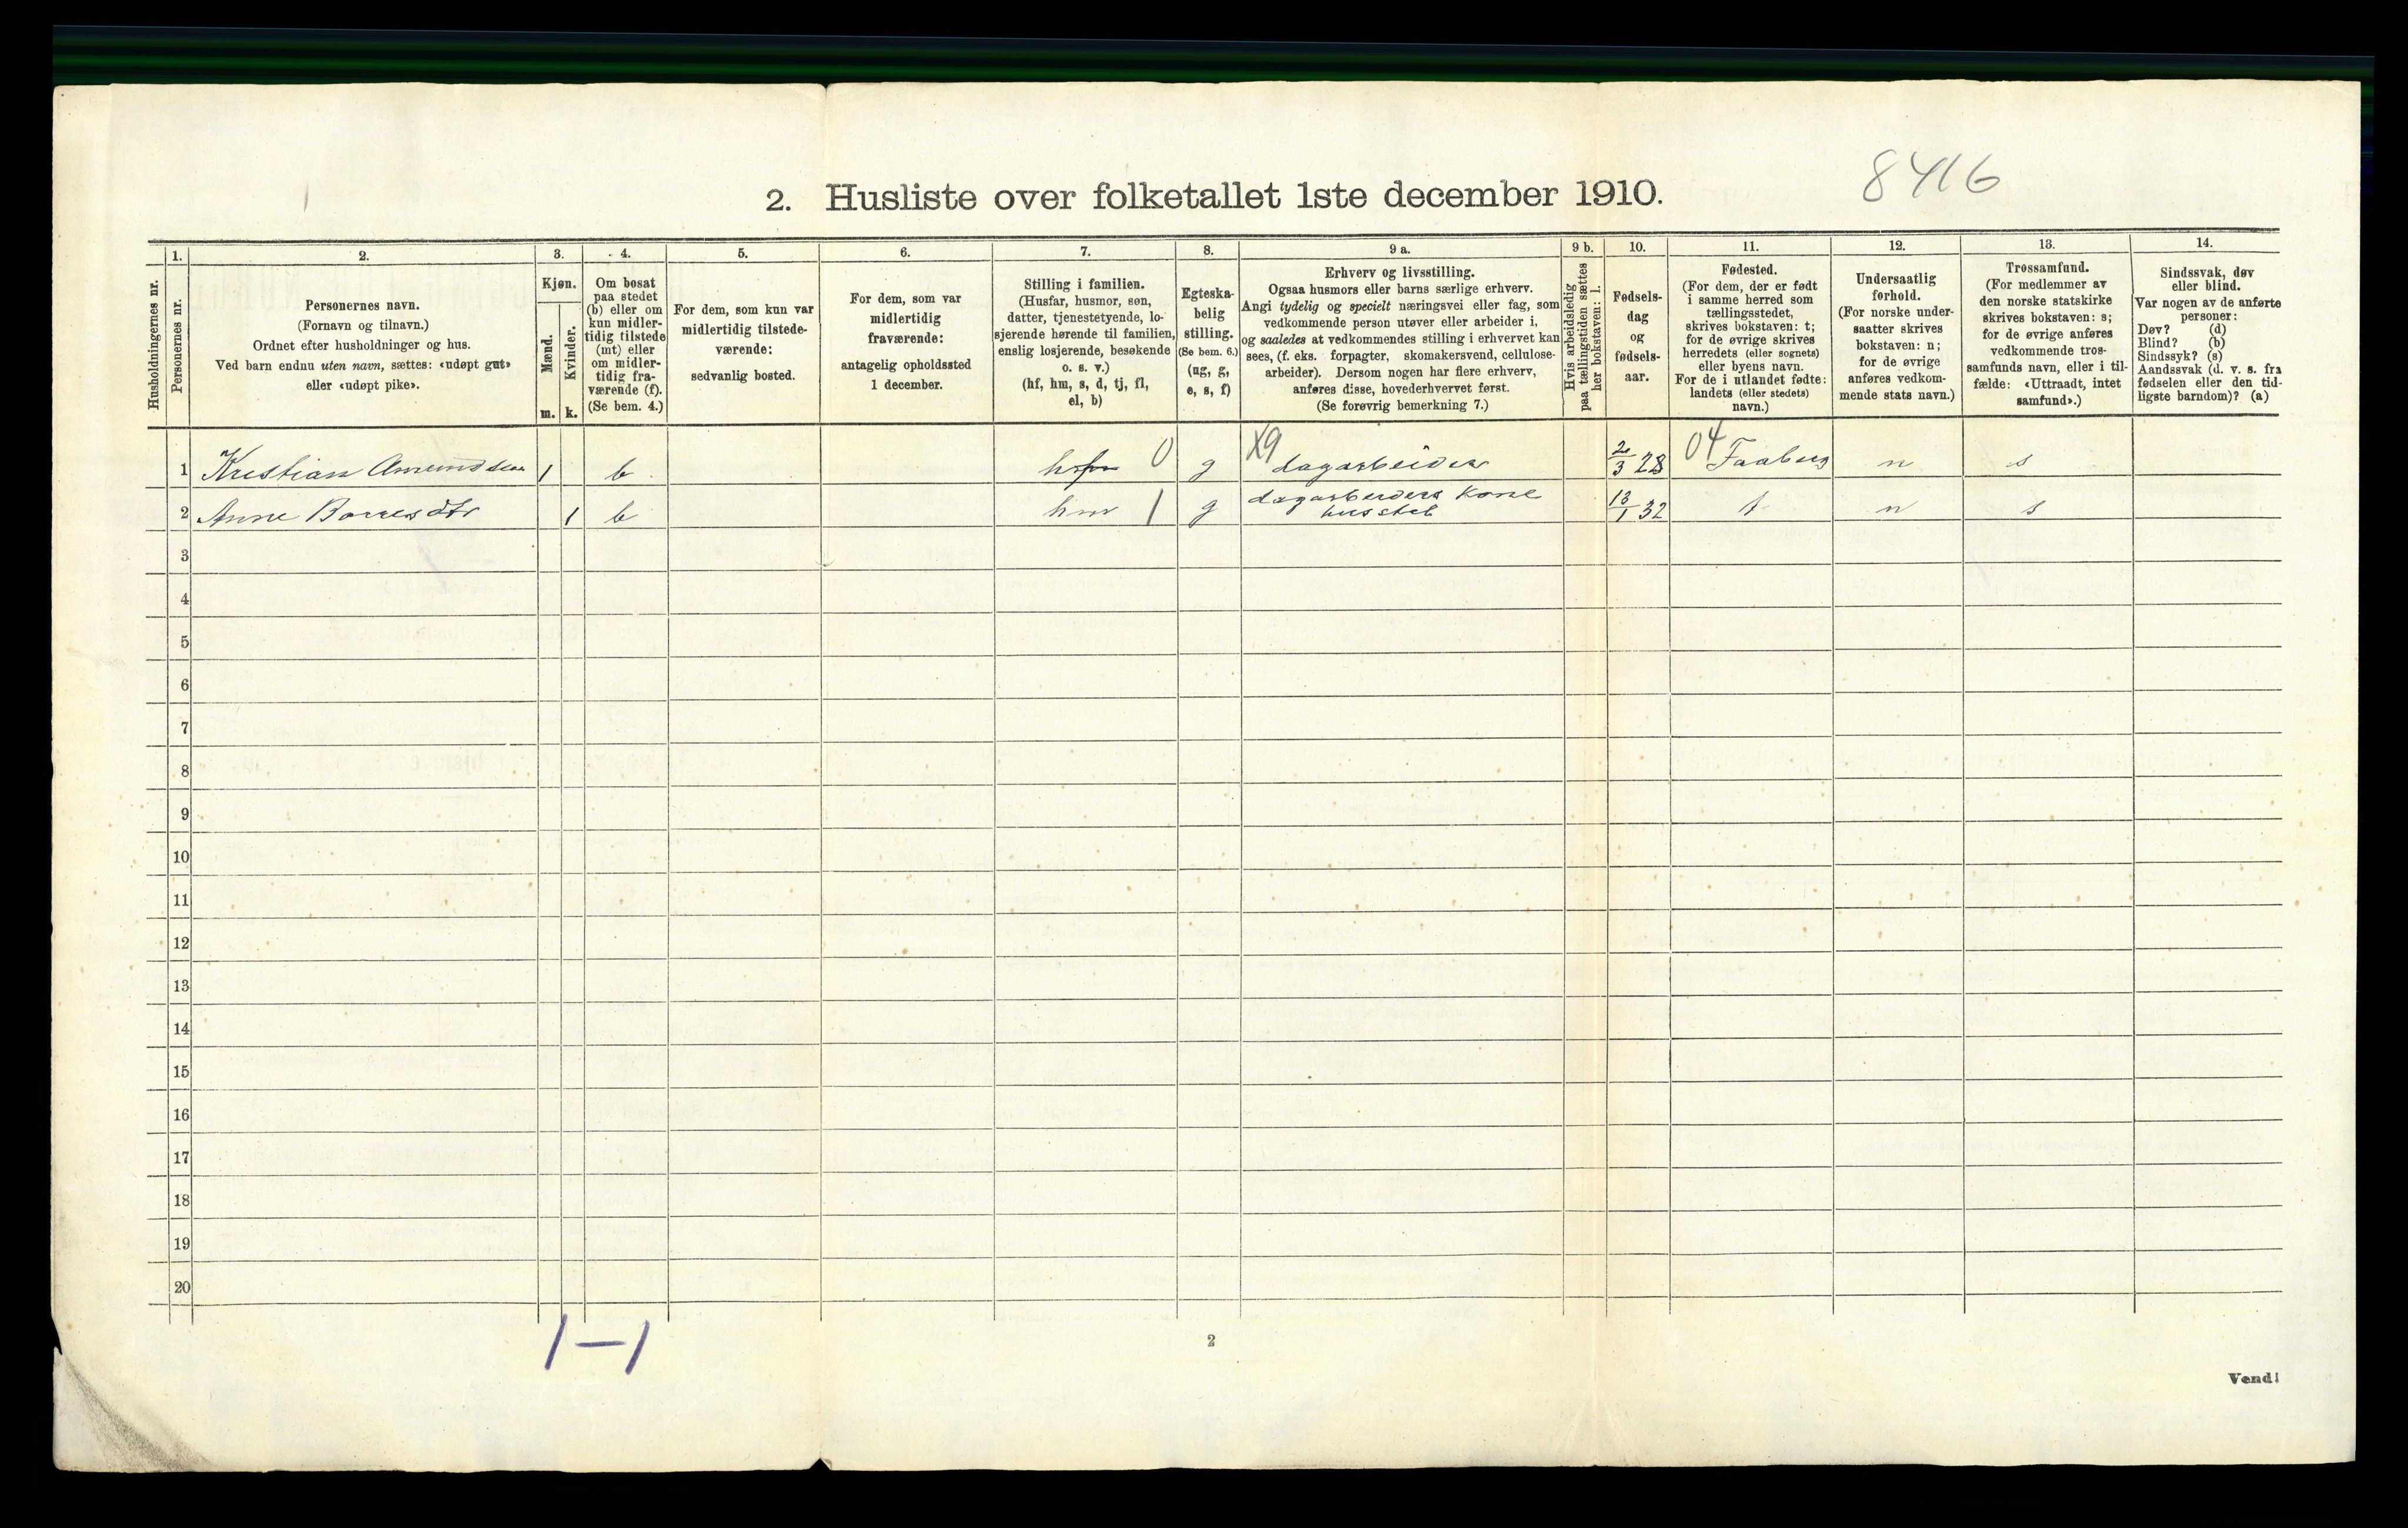 8416
2. Husliste over folketallet 1ste december 1910.
Husholdningernes nr.
1.
Personernes nr.
2.
Personernes navn.
(Fornavn og tilnavn.)
Ordnet efter husholdninger og hus.
Ved barn endnu uten navn, sættes: «udøpt gut»
eller «udøpt pike».
3.
Kjøn.
Mænd.
Kvinder.
m. k.
4.
Om bosat
paa stedet
(b) eller om
kun midler-
tidig tilstede
(mt) eller
om midler-
tidig fra-
værende (f).
(Se bem. 4.)
5.
For dem, som kun var
midlertidig tilstede-
værende:
sedvanlig bosted.
6.
For dem, som var
midlertidig
fraværende:
antagelig opholdssted
1 december.
7.
Stilling i familien.
(Husfar, husmor, søn,
datter, tjenestetyende, lo-
sjerende hørende til familien,
enslig losjerende, besøkende
o. s. v.)
(hf, hm, s, d, tj, fl,
el, b)
8.
Egteska-
belig
stilling.
(Se bem. 6.)
(ug, g,
e, s, f)
9 a.
Erhverv og livsstilling.
Ogsaa husmors eller barns særlige erhverv.
Angi tydelig og specielt næringsvei eller fag, som
vedkommende person utøver eller arbeider i,
og saaledes at vedkommendes stilling i erhvervet kan
sees, (f. eks. forpagter, skomakersvend, cellulose-
arbeider). Dersom nogen har flere erhverv,
anføres disse, hovederhvervet først.
(Se forøvrig bemerkning 7.)
9 b.
Hvis arbeidsledig
paa tællingstiden sættes
her bokstaven: l.
10.
Fødsels-
dag
og
fødsels-
aar.
11.
Fødested.
(For dem, der er født
i samme herred som
tællingsstedet,
skrives bokstaven: t;
for de øvrige skrives
herredets (eller sognets)
eller byens navn.
For de i utlandet fødte:
landets (eller stedets)
navn.)
12.
Undersaatlig
forhold.
(For norske under-
saatter skrives
bokstaven: n;
for de øvrige
anføres vedkom-
mende stats navn.)
13.
Trossamfund.
(For medlemmer av
den norske statskirke
skrives bokstaven: s;
for de øvrige anføres
vedkommende tros-
samfunds navn, eller i til-
fælde: «Uttraadt, intet
samfund».)
14.
Sindssvak, døv
eller blind.
Var nogen av de anførte
personer:
Døv? (d)
Blind? (b)
Sindssyk? (s)
Aandssvak (d. v. s. fra
fødselen eller den tid-
ligste barndom)? (a)
1 Kristian Amundsen 1 b 0 g X9 dagarbeider 2/3 28 04 Faaberg n s
2 Anne 1 b hm 1 g dagarbeiders kone 13/1 32 t n s
husstel
3
4
5
6
7
8
9
10
11
12
13
14
15
16
17
18
19
20
1—1
2
Vend!